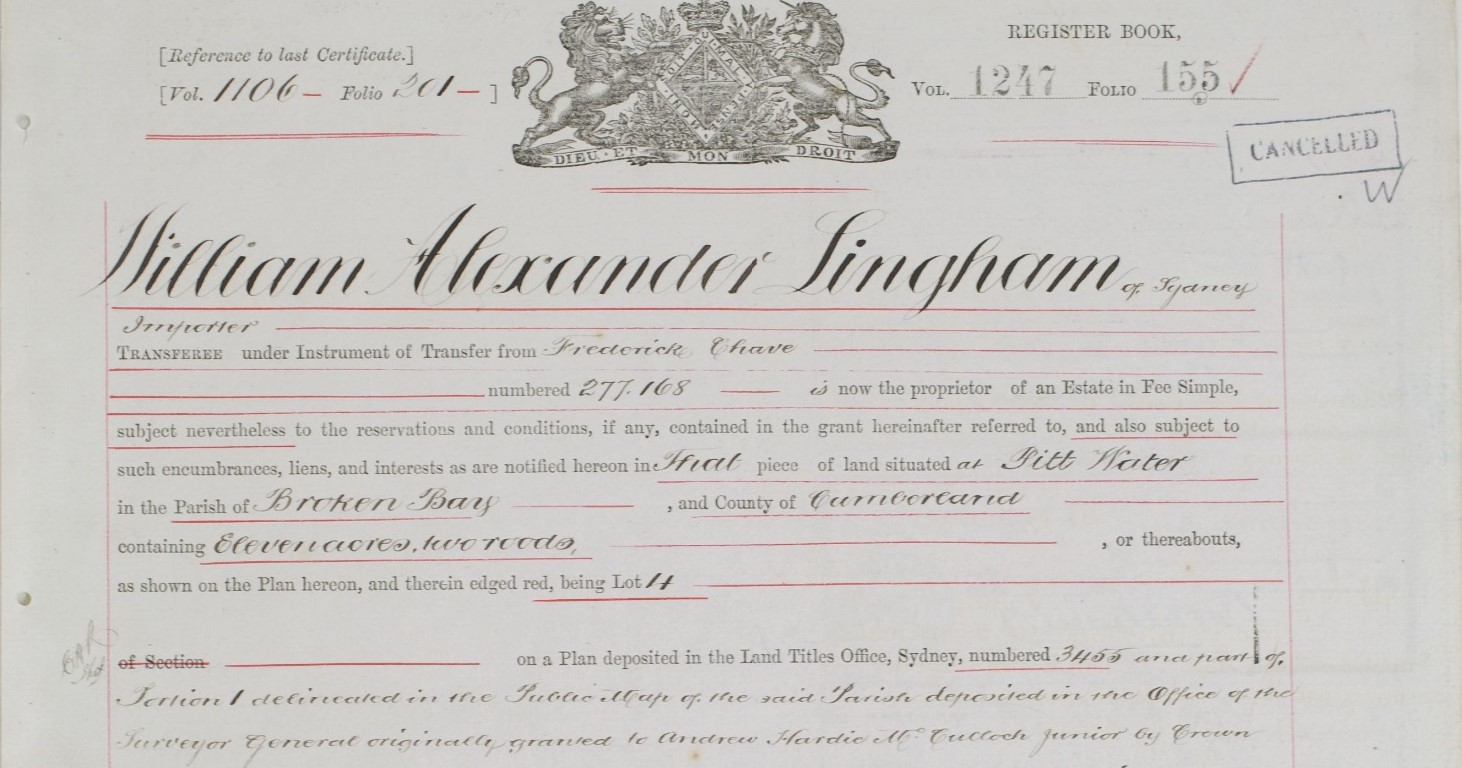 [Reference to last Certificate.]
[Vol. 1106 – Folio 201 – ]
DIEU · ET MON DROIT
REGISTER BOOK,
VOL. 1247 FOLIO 155
CANCELLED
W
William Alexander Lingham of Sydney
Importer
TRANSFEREE under Instrument of Transfer from Frederick Chave
numbered 277.168 is now the proprietor of an Estate in Fee Simple,
subject nevertheless to the reservations and conditions, if any, contained in the grant hereinafter referred to, and also subject to
such encumbrances, liens, and interests as are notified hereon in That piece of land situated at Pitt Water
in the Parish of Broken Bay , and County of Cumberland
containing Eleven acres, two roods, , or thereabouts,
as shown on the Plan hereon, and therein edged red, being Lot 4
of Section on a Plan deposited in the Land Titles Office, Sydney, numbered 3455 and part of
Portion 1 delineated in the Public Map of the said Parish deposited in the Office of the
Surveyor General originally granted to Andrew Hardie McCulloch junior by Crown